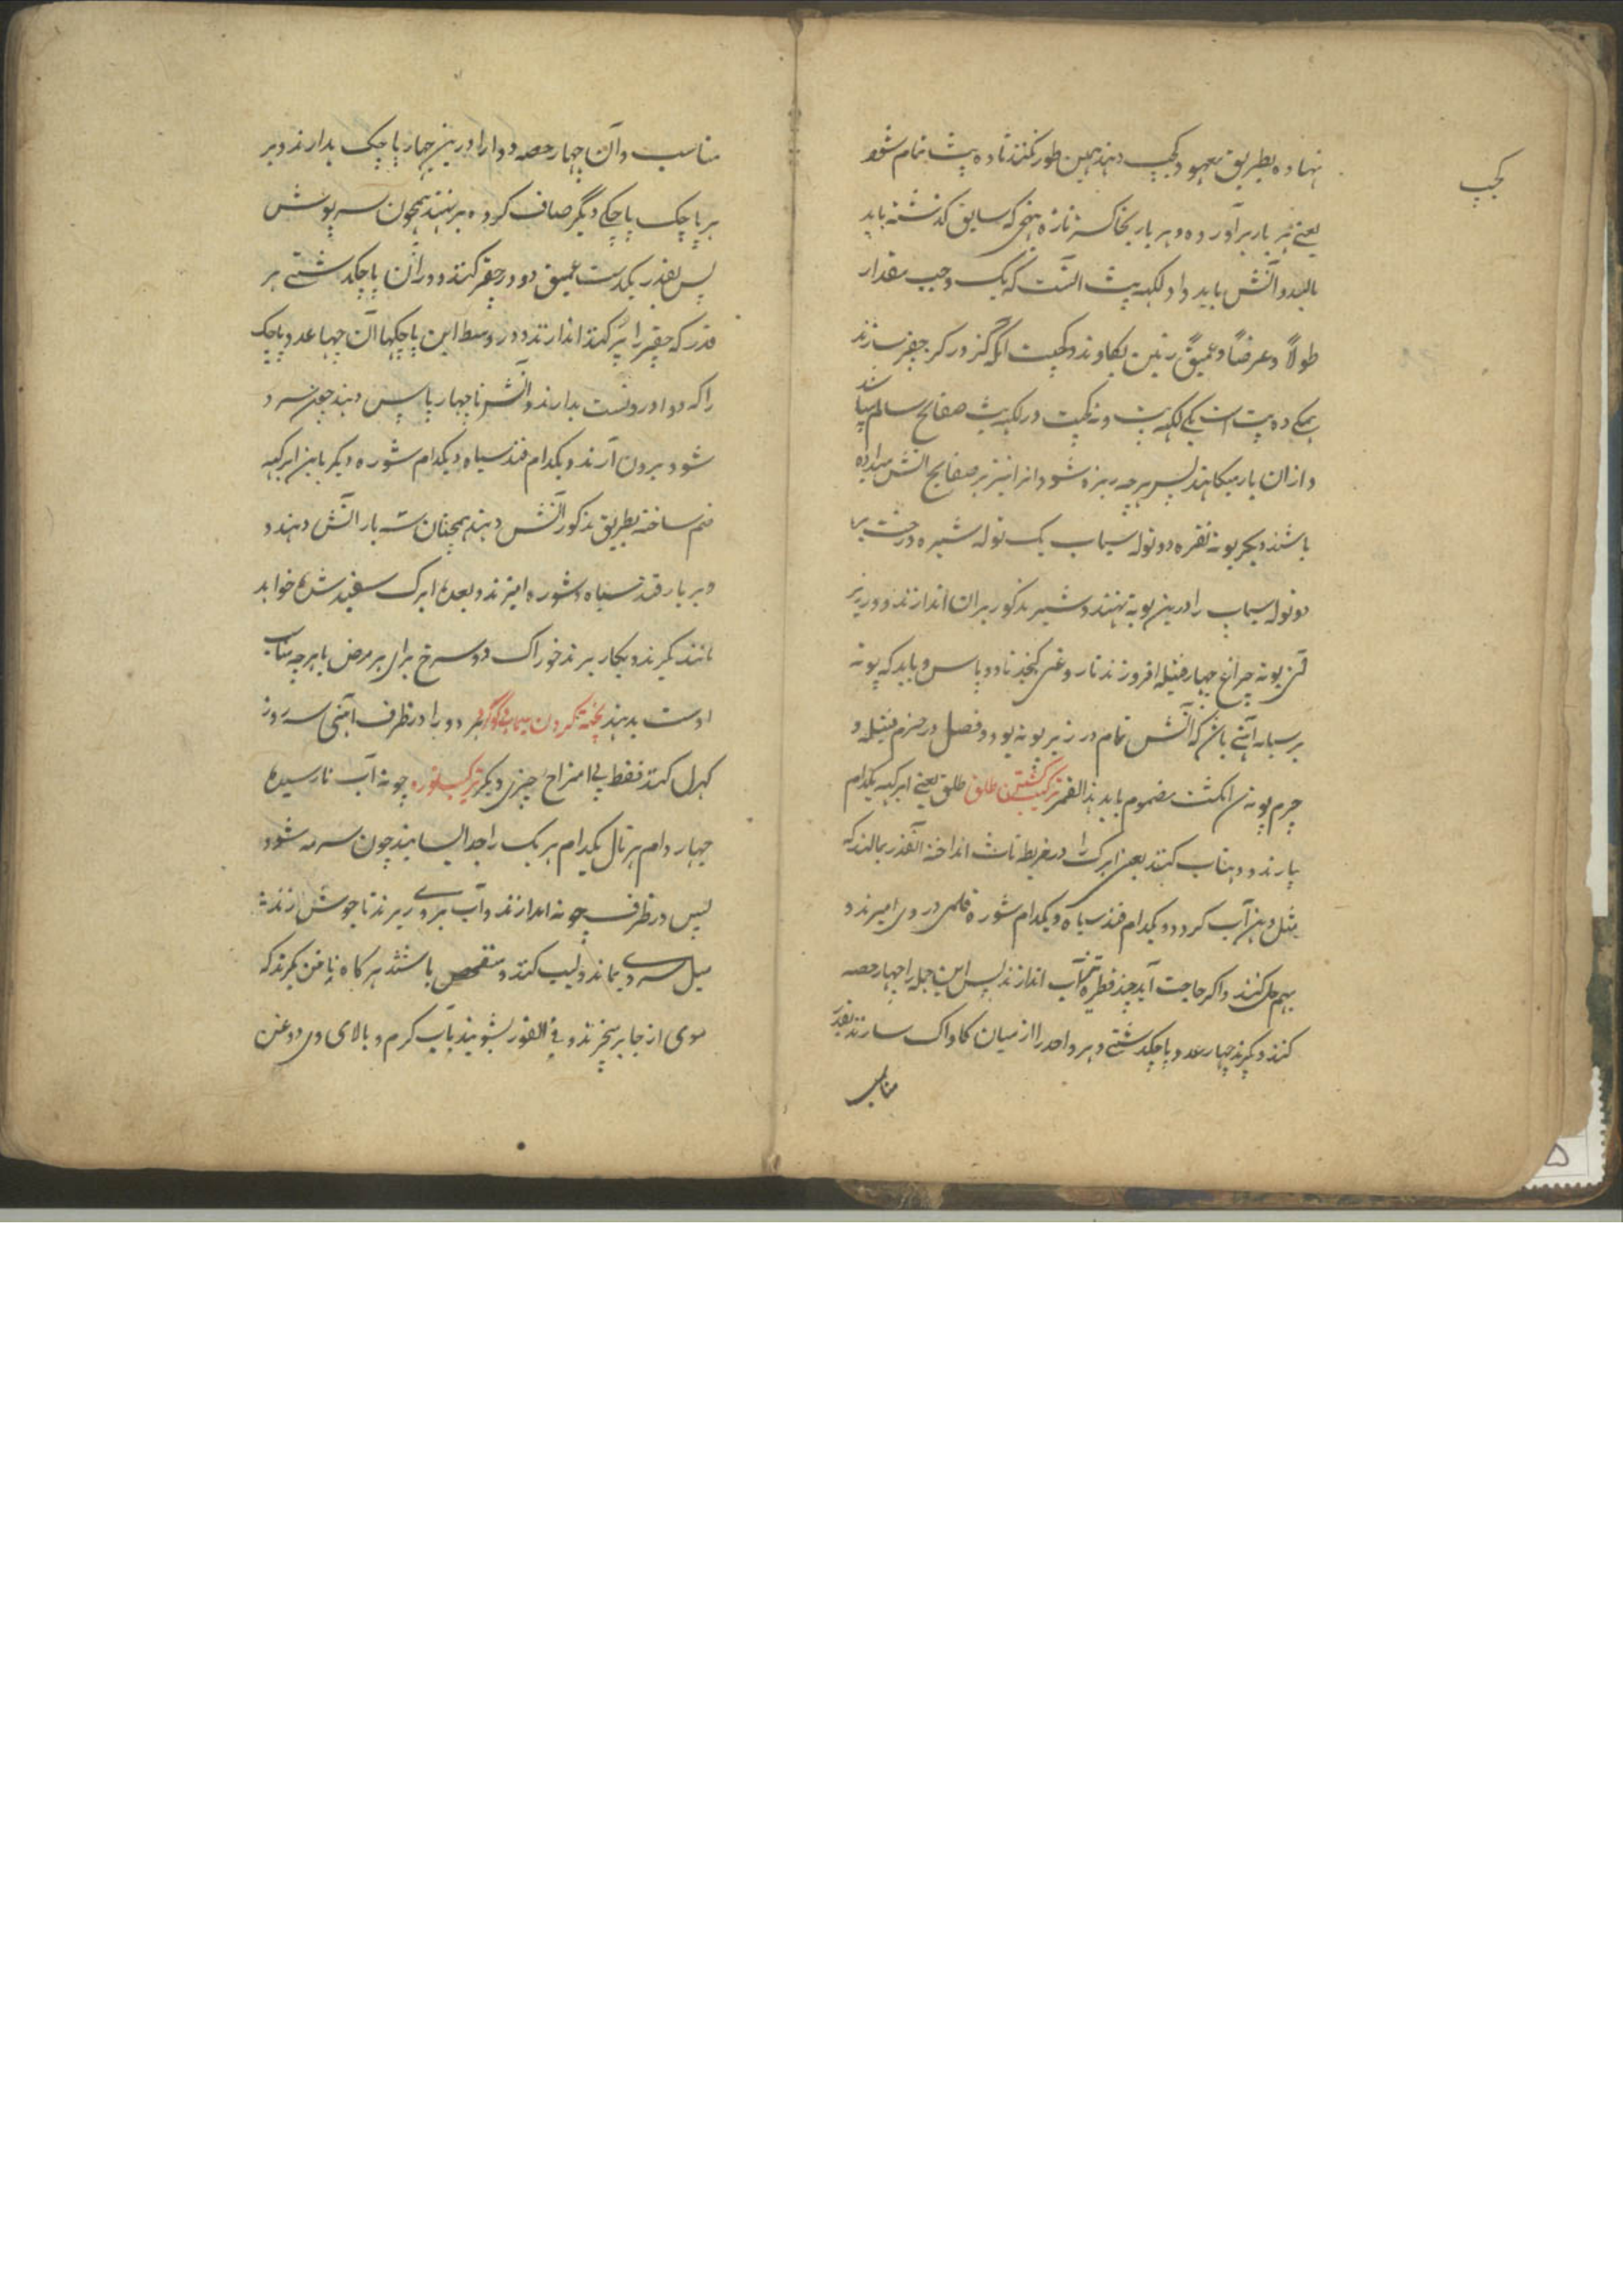 کجپ
نهاده بطریق معهود کجپ دهند همین طور کنند تا ده پت تمام شود
یعنی هر بار برآورده و هر بار بخاکستر تازه بنهجی که سابق گذشته باید
مالید و آتش باید داد لکهه پت آنست که یک وجب مقدار
طولاً و عرضاً و عمیق زمین بکاوند و کجپت آنکه گز در گز جفر سازند
همکی ده پت است یکی لکهه پت و نه کجپت در لکهه پت صفایح سالم میباشد
و ازان بار میکاهند پس هر چه ریزه شود انرا نیز بر صفایح آتش میداده
باشند دیگر بوته نقره دو توله سیماب یک توله شیره درخت
دو توله سیماب را درین بوته نهند و شیر مذکور بران اندازند و در زیر
بوته چراغ چهار فتیله افروزند تا روغن کنجد تا دو پاس و باید که بوته
بر سپایه آهنی باشد که آتش تمام در زیر بوته بود و فصل در جرم فتیله و
جرم بوته انگشت مضموم باید هذا القمر ترکیب کشتن طلق طلق یعنی ابرکهه یکدام
بیارند و دهناب کنند یعنی ابرک را در خریطه تات انداخته آنقدر بمالند که
مثل دهن آب گردد و یکدام قند سیاه و یکدام شوره قلمی در وی امیزند و
بهم حل کنند و اگر حاجت آید چند قطره آب اندازند پس این جمله را چهار حصه
کنند و بگیرند چهار عدد پاچکدشتی و هر واحد را از میان کاواک سازند بقدر
مناسب
مناسب و آن چهار حصه دوا را درین چهار پاچک بدارند و بر
هر پاچک پاچکی دیگر صاف کرده بر نهند همچون سرپوش
پس بقدر یکدست عمیق دور جفر کنند و دران پاچکدشتی هر
قدر که جفر را پر کند اندازند و در وسط این پاچکها آن چهار عدد پاچک
را که دوا دروست بدارند و آتش تا چهار پاس دهند چون سرد
شود برون آرند و یکدام قند سیاه و یکدام شوره دیگر باین ابرکهه
ضم ساخته بطریق مذکور آتش دهند همچنان سه بار آتش دهند و
هر بار قند سیاه و شوره امیزند و بعده ابرک سفید شده خواهد
ماند بگیرند و بکار برند خوراک دو سرخ برای هر مرض با هر چه مناسب
اوست بدهند پخته کردن سیماب و گوگرد هر دو را در ظرف آهنی سه روز
کهرل کنند فقط بی امتزاج چیزی دیگر ترکیب نوره چونه آب نارسیده
چهار دام هرتال یکدام هر یک را جدا سایند چون سرمه شود
پس در ظرف چونه اندازند و آب بروی ریزند تا جوش زند
میل سردی نماند و لیب کنند و متفحص باشند هر گاه بناخن بگیرند که
موی از جا برخیزند و فی الفور بشویند بآب گرم و بالای وی روغن